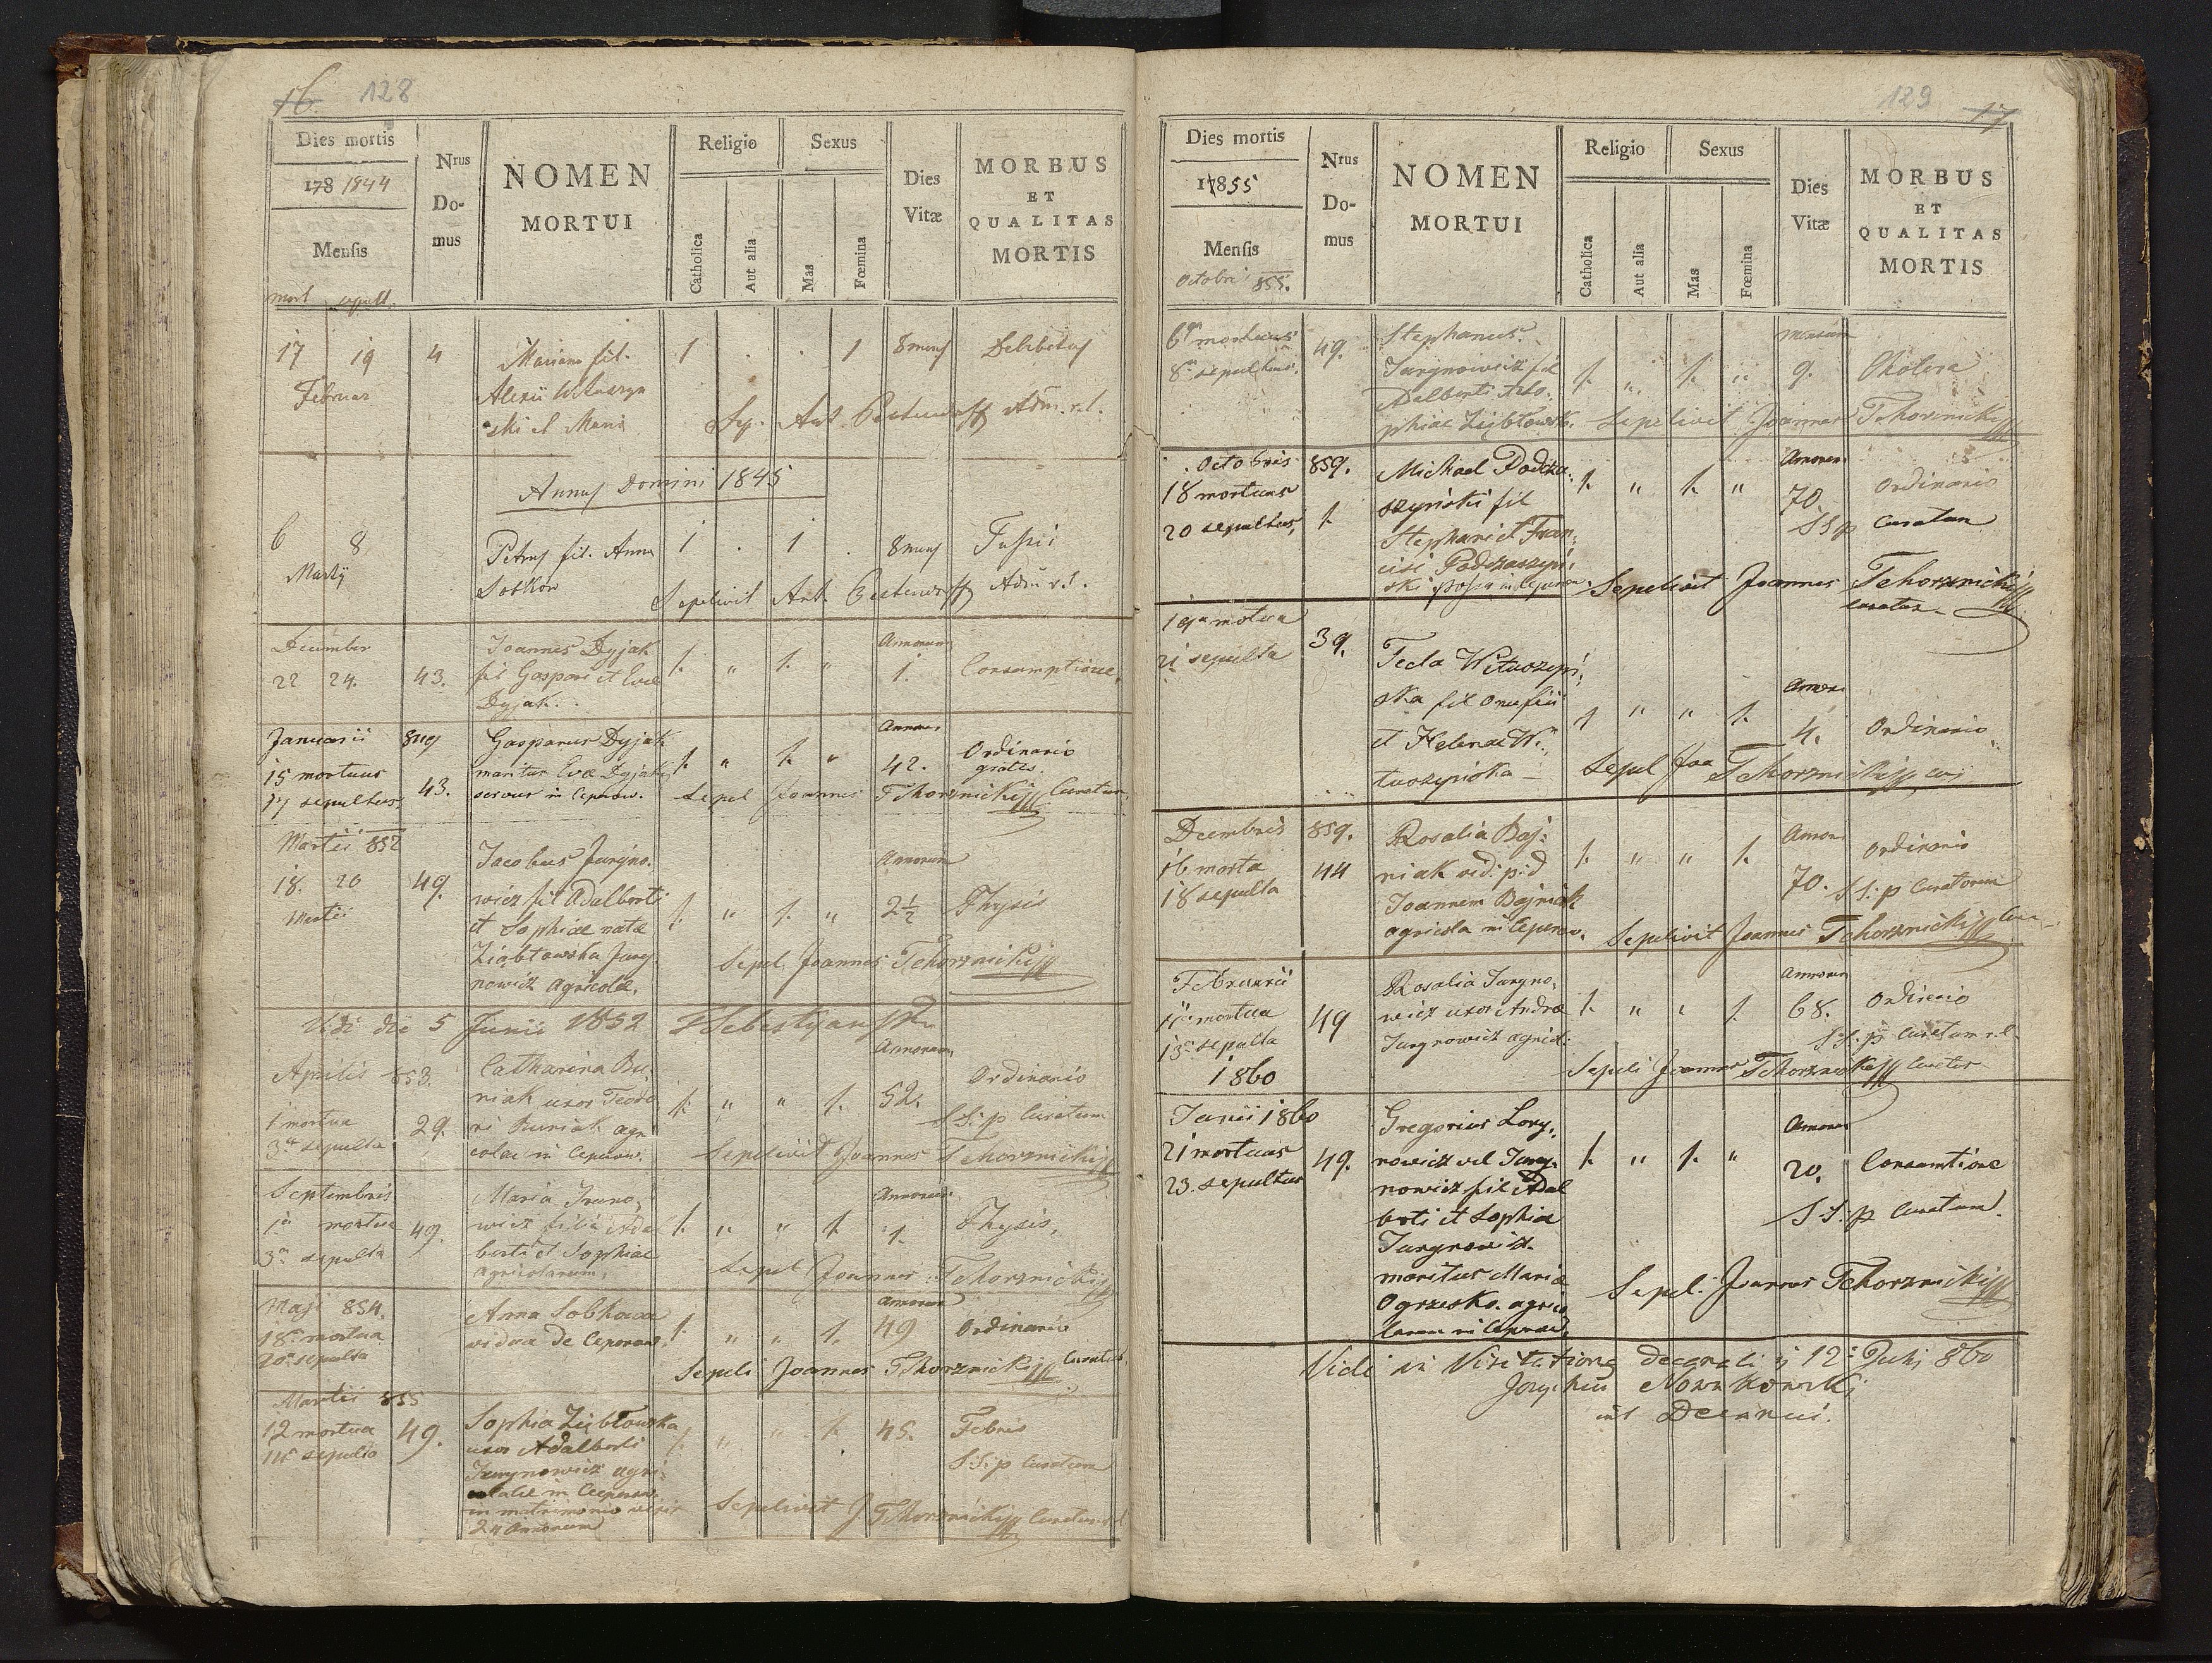 16. 128
Dies mortis
178 1844
Mensis
mort sepult.
Nrus Domus
NOMEN
MORTUI
Religio
Catholica
Aut alia
Sexus
Mas
Fœmina
Dies
Vitæ
MORBUS
ET
QUALITAS
MORTIS
17 19 4 Mariana fil. 1 . . 1 8 mens Debilitas
Februar Alexii
ski et Maria Sep. Ant. Adm. r. l.
Annus Domini 1845
6 8 Petrus fil. Anna 1 . 1 . 8 mens Tussis
Martij Sobkow Sepelivit Ant. Adm r. l.
December Joannes Dyjak Annorum
22 24. 43. fil Gaspari et Evae 1. " 1. " 1. Consumptione.
Dyjak.
Januarii 849 Gasparus Dyjak Annor
15 mortuus maritus Evae Dyjak 1. " 1. " 42. Ordinario
gratis.
17 sepultus 43. servus in Ceperow. Sepel Joannes Tchorznicki Curatus
Martii 852 Jacobus Juryno- Annorum
18. 20 49. wicz fil Adalberti
Martii et Sophiae natae 1. " 1. " 2½ Thysis
Ziąbłowska Jury-
nowicz agricolae. Sepel Joannes Tchorznicki
Vidi die 5 Junii 1852
Aprilis 853. Catharina Bu- Annorum Ordinario
niak uxor Teodo- 1. " " 1. 52. S S: p Curatum
1 mortua 29. ri Buniak agri-
3tia sepulta colae in Ceperow. Sepelivit Joannes Tchorznicki
Septembris Maria Juryno- Annorum
1a mortua 49. wicz filia Adal- 1. " " 1. 1. Thysis,
3a sepulta berti et Sophiae
agricolarum, Sepel Joannes Tchorznicki
Maji 854. Anna Sobkowa Annorum
18a mortua vidua de Ceperow. 1. " " 1. 49 Ordinario
20a sepulta Sepeli Joannes Tchorznicki Curatus
Martii 855
12 mortua 49. Sophia Ziębłowska 1. " " 1. 45. Febris
14 sepulta uxor Adalberti
Jurynowicz agri- S S: p Curatum
colae in Ceperow.
in matrimonio vixit Sepelivit J Tchorznicki Curatus r. l
24 annorum
129 17
Dies mortis
17855
Mensis
Octobri 855.
Nrus Domus
NOMEN
MORTUI
Religio
Catholica
Aut alia
Sexus
Mas
Fœmina
Dies
Vitæ
MORBUS
ET
QUALITAS
MORTIS
6a mortuus 49. Stephanus Mensium
8a sepultus. Jurynowicz fil 1. " 1. " 9. Cholera
Adalberti et So-
phiae Ziębłowsk. Sepelivit Joannes Tchorznicki
Octobris 859. Michael Podcza- Annoru
18 mortuus szyński fil 1. " 1. " 70. Ordinario
20 sepultus, 1. Stephani et Fran- S S p Curatum
cisi Podczaszyń-
ski in Ceperow. Sepelivit Joannes Tchorznicki
Curatus
19a motua 39. Tecla Witwszyń-
21 sepulta ska fil Onufrii Annor
et Helenae Wi- 1 " " 1. 4. Ordinario
twszyńska Sepel Joa Tchorznicki
Decembris 859. Rosalia Baj- Annor
16 morta 44 niak vid: p: d 1. " " 1. Ordinario
18 sepulta Joannem Bajniak 70. S S: p Curatorem
agricola in Ceperow. Sepelivit Joannes Tchorznicki Cur
Februarii Rosalia Juryno- Annorum
11a mortua 49 wicz uxor Andrae 1. " " 1. 68. Ordinario
13a sepulta Jurynowicz agricol: S S: p Curatum r. l
1860 Sepeli Joannes Tchorznicki Curatus
Junii 1860 Gregorius Lory- Annor
21 mortuus 49. nowicz vel Jury- 1. " 1. " 20. Consumtione
23. sepultus nowicz fil Adal-
berti et Sophia S S: p Curatum.
Jurynowicz.
maritus Maria
Ogrzesko. agrico- Sepel: Joannes Tchorznicki
larum in Ceperow.
Vidi in Visitatione decanali 12a Julij 860
Nowakowski
Decanus.